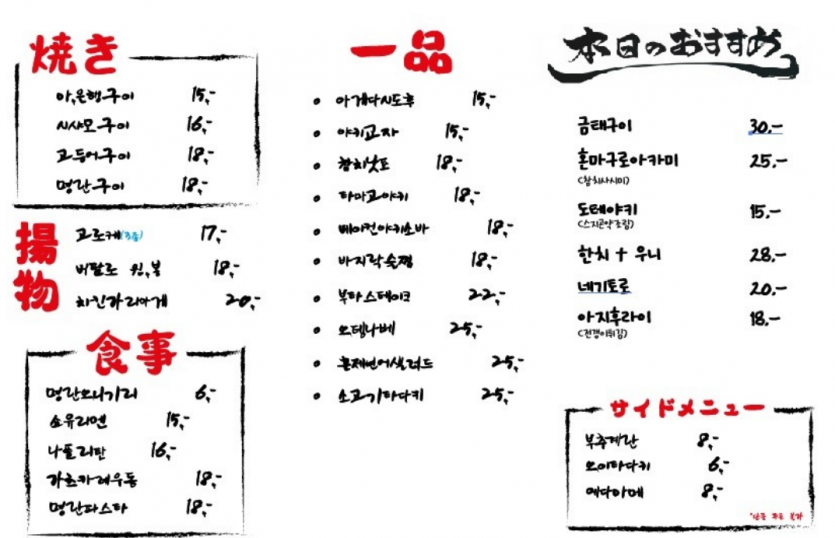 焼き
마,은행구이 15,-
시샤모구이 16,-
고등어구이 18,-
명란구이 18,-
揚物
고로케(3종) 17,-
버팔로 윙,봉 18,-
치킨가라아게 20,-
食事
명란오니기리 6,-
소유라멘 15,-
나폴리탄 16,-
가츠카레우동 18,-
명란파스타 18,-
一品
아게다시도후 15,-
야키교자 15,-
참치낫또 18,-
타마고야키 18,-
베이컨야키소바 18,-
바지락술찜 18,-
부타스테이크 22,-
오뎅나베 25,-
훈제연어샐러드 25,-
소고기타다키 25,-
本日のおすすめ
금태구이 30,-
혼마구로아카미 25,-
(참치사시미)
도테야키 15,-
(스지곤약조림)
한치 + 우니 28,-
네기토로 20,-
아지후라이 18,-
(전갱이튀김)
サイドメニュー
부추계란 8,-
오이타다키 6,-
에다마메 8,-
*단독 주문 불가